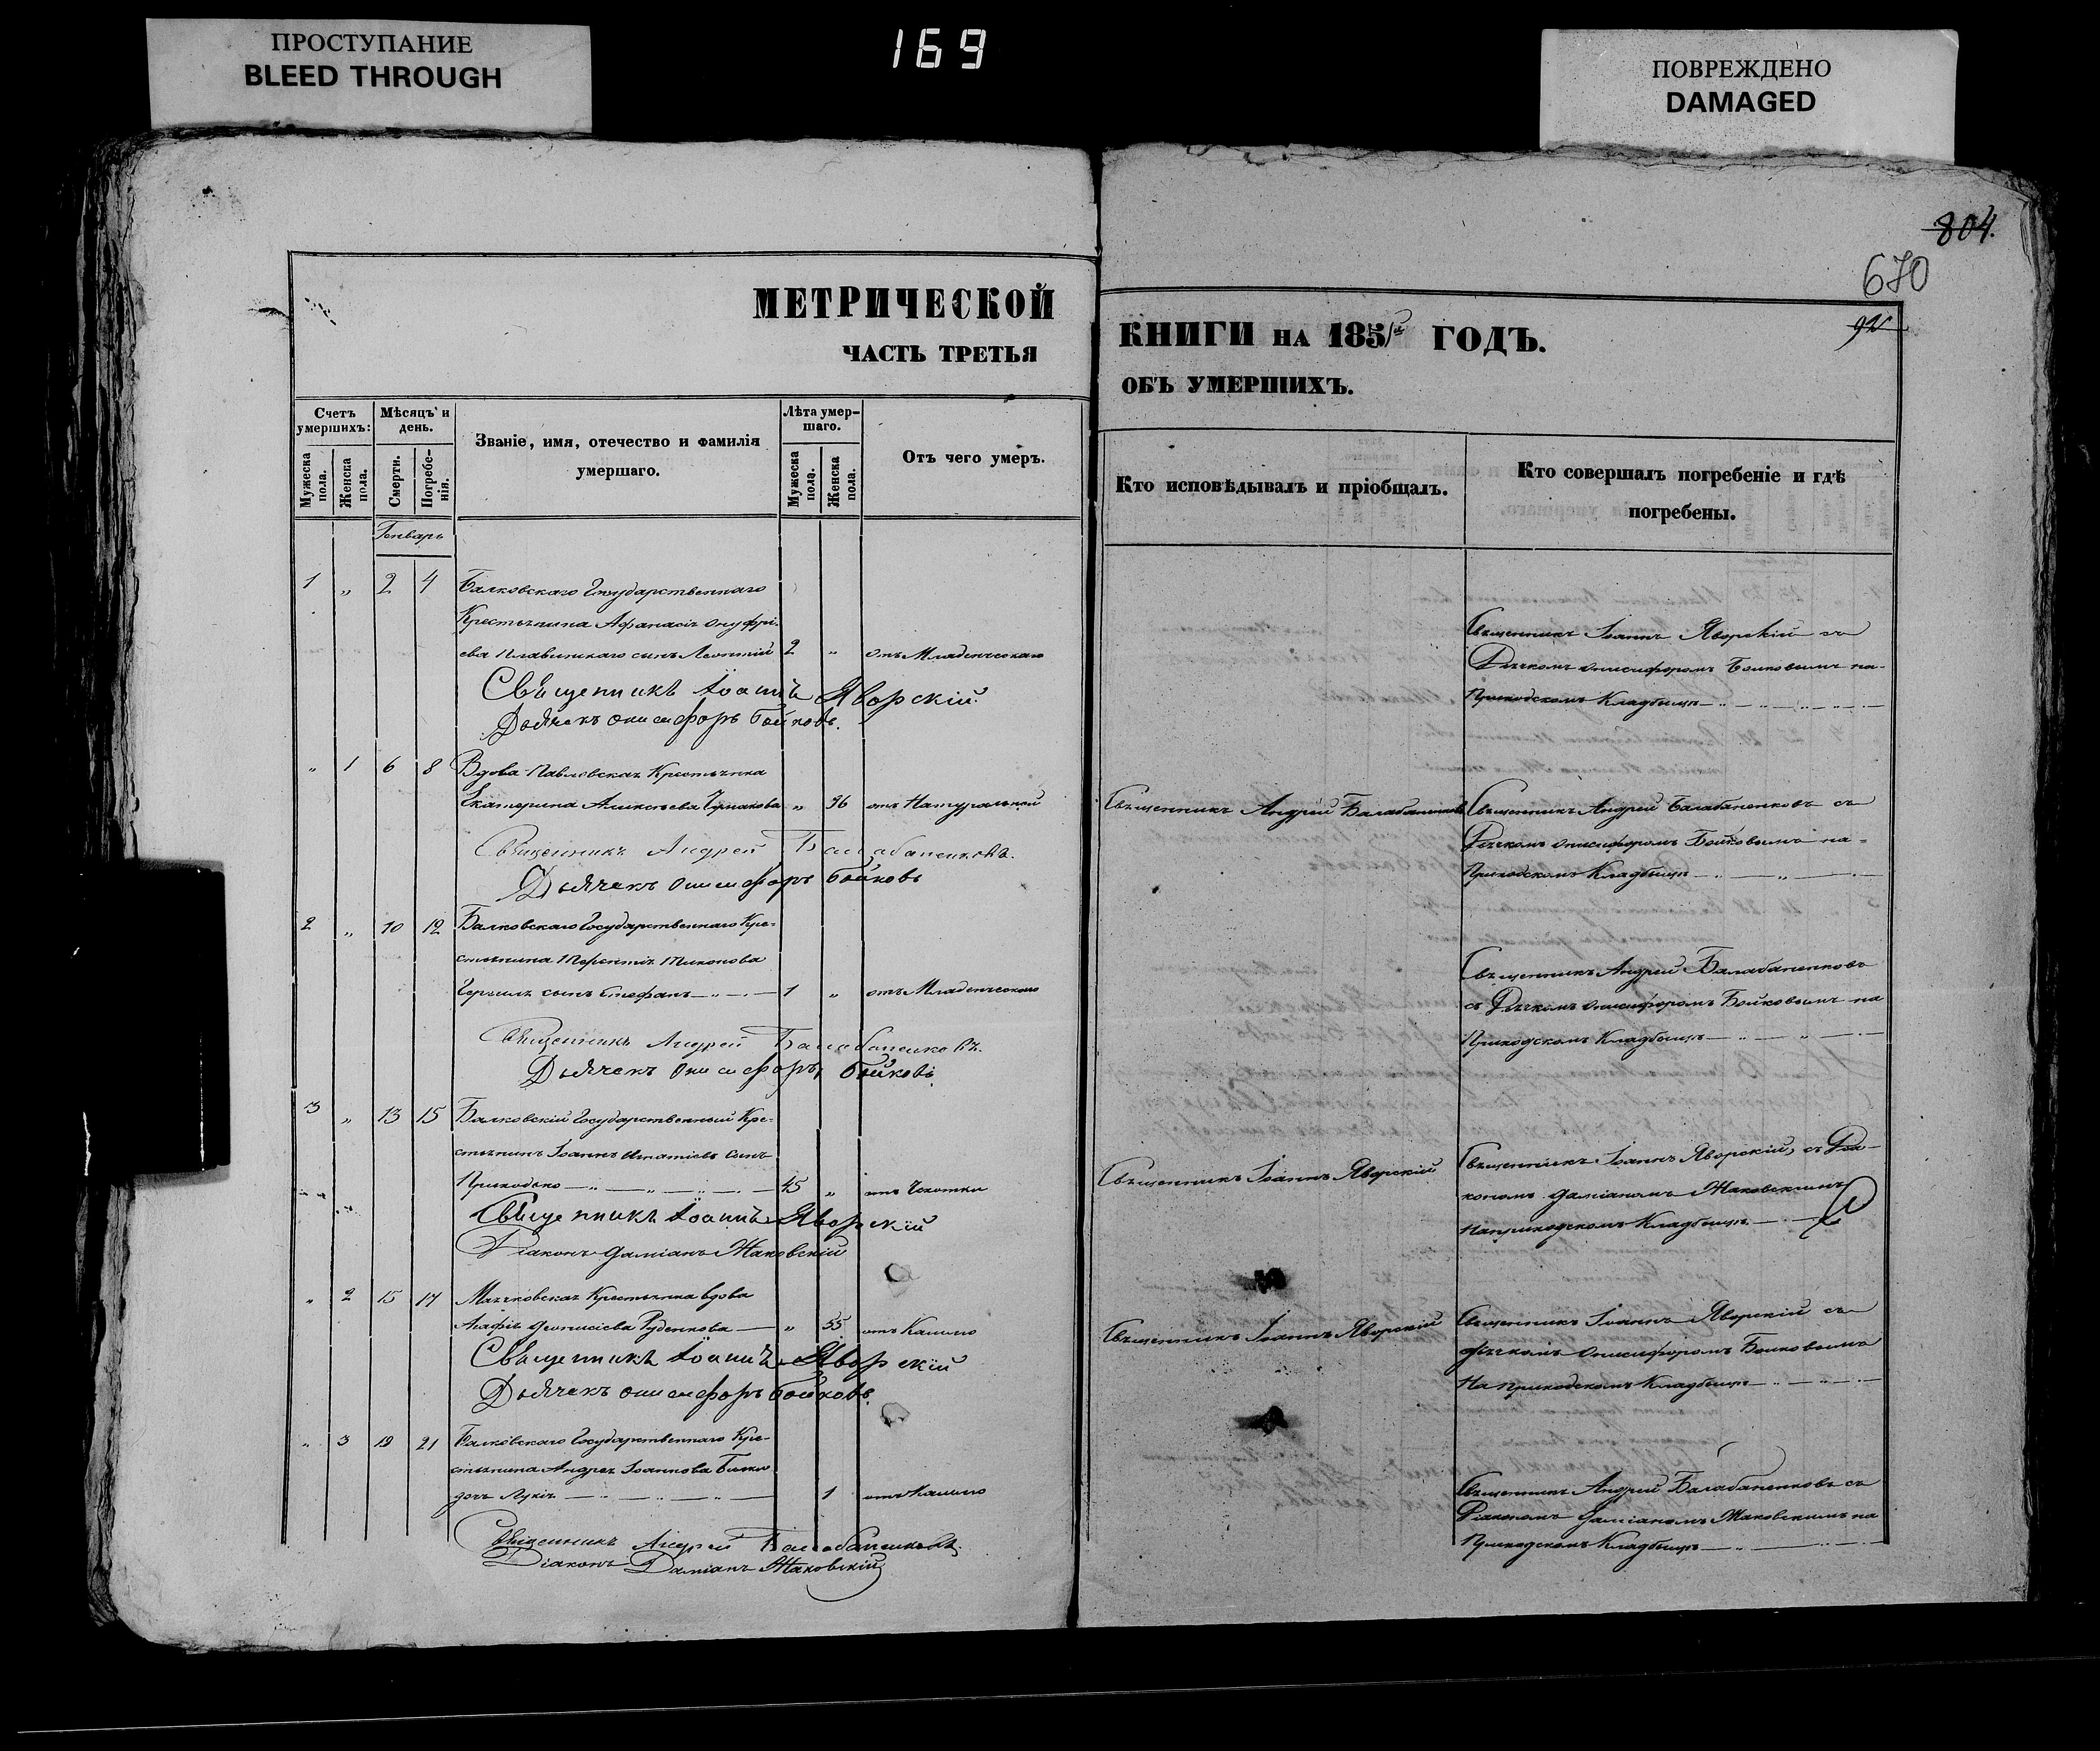 ПРОСТУПАНИЕ
BLEED THROUGH
169
ПОВРЕЖДЕНО
DAMAGED
804.
670
92
МЕТРИЧЕСКОЙ
ЧАСТЬ ТРЕТЬЯ
КНИГИ НА 185 ГОДЪ.
ОБЪ УМЕРШИХЪ.
Счетъ умершихъ:
Мужеска пола.
Женска пола.
Мѣсяцъ и день.
Смерти.
Погребенія.
Званіе, имя, отечество и фамилія
умершаго.
Лѣта умершаго.
Мужеска пола.
Женска пола.
Отъ чего умеръ.
Кто исповѣдывалъ и пріобщалъ.
Кто совершалъ погребеніе и гдѣ
погребены.
Генварь
1 „ 2 4 Балковскаго Государственнаго
Крестьянина Афанасія Онуфрі-
ева сынъ Леонтій 2 „ отъ Младенческаго
Священникъ Іоаннъ Яворскій съ
Дьячкомъ Онисифоромъ Бойковымъ на
Приходскомъ Кладбищѣ
Священникъ Іоаннъ Яворскій.
Дьячекъ Онисифоръ Бойковъ.
„ 1 6 8 Вдова Павловская Крестьянка
Екатерина Алексѣева „ 96 отъ Натуральной
Священникъ Андрей Балабаненковъ
Священникъ Андрей Балабаненковъ съ
Дьячкомъ Онисифоромъ Бойковымъ на
Приходскомъ Кладбищѣ
Священникъ Андрей Балабаненковъ.
Дьячекъ Онисифоръ Бойковъ
2 „ 10 12 Балковскаго Государственнаго Кре-
стьянина Терентія Тихонова
сынъ Стефанъ 1 „ отъ Младенческаго
Священникъ Андрей Балабаненковъ
съ Дьячкомъ Онисифоромъ Бойковымъ на
Приходскомъ Кладбищѣ
Священникъ Андрей Балабаненковъ.
Дьячекъ Онисифоръ Бойковъ.
3 „ 13 15 Балковскій Государственный Кре-
стьянинъ Іоаннъ Игнатіевъ сынъ
Приходько 45 „ отъ Чахотки
Священникъ Іоаннъ Яворскій
Священникъ Іоаннъ Яворскій, съ Діа-
кономъ Даміаномъ Маковскимъ
на приходскомъ Кладбищѣ
Священникъ Іоаннъ Яворскій
Діаконъ Даміанъ Маковскій
„ 2 15 17 Крестьянка вдова
Агафія Діонисіева Руденкова „ 55 отъ Кашлю
Священникъ Іоаннъ Яворскій
Священникъ Іоаннъ Яворскій съ
дьячкомъ Онисифоромъ Бойковымъ
на приходскомъ Кладбищѣ
Священникъ Іоаннъ Яворскій
Дьячекъ Онисифоръ Бойковъ.
„ 3 19 21 Балковскаго Государственнаго Кре-
стьянина Андрея Іоаннова
дочь 1 отъ Кашлю
Священникъ Андрей Балабаненковъ съ
Діакономъ Даміаномъ Маковскимъ на
Приходскомъ Кладбищѣ
Священникъ Андрей Балабаненковъ.
Діаконъ Даміанъ Маковскій